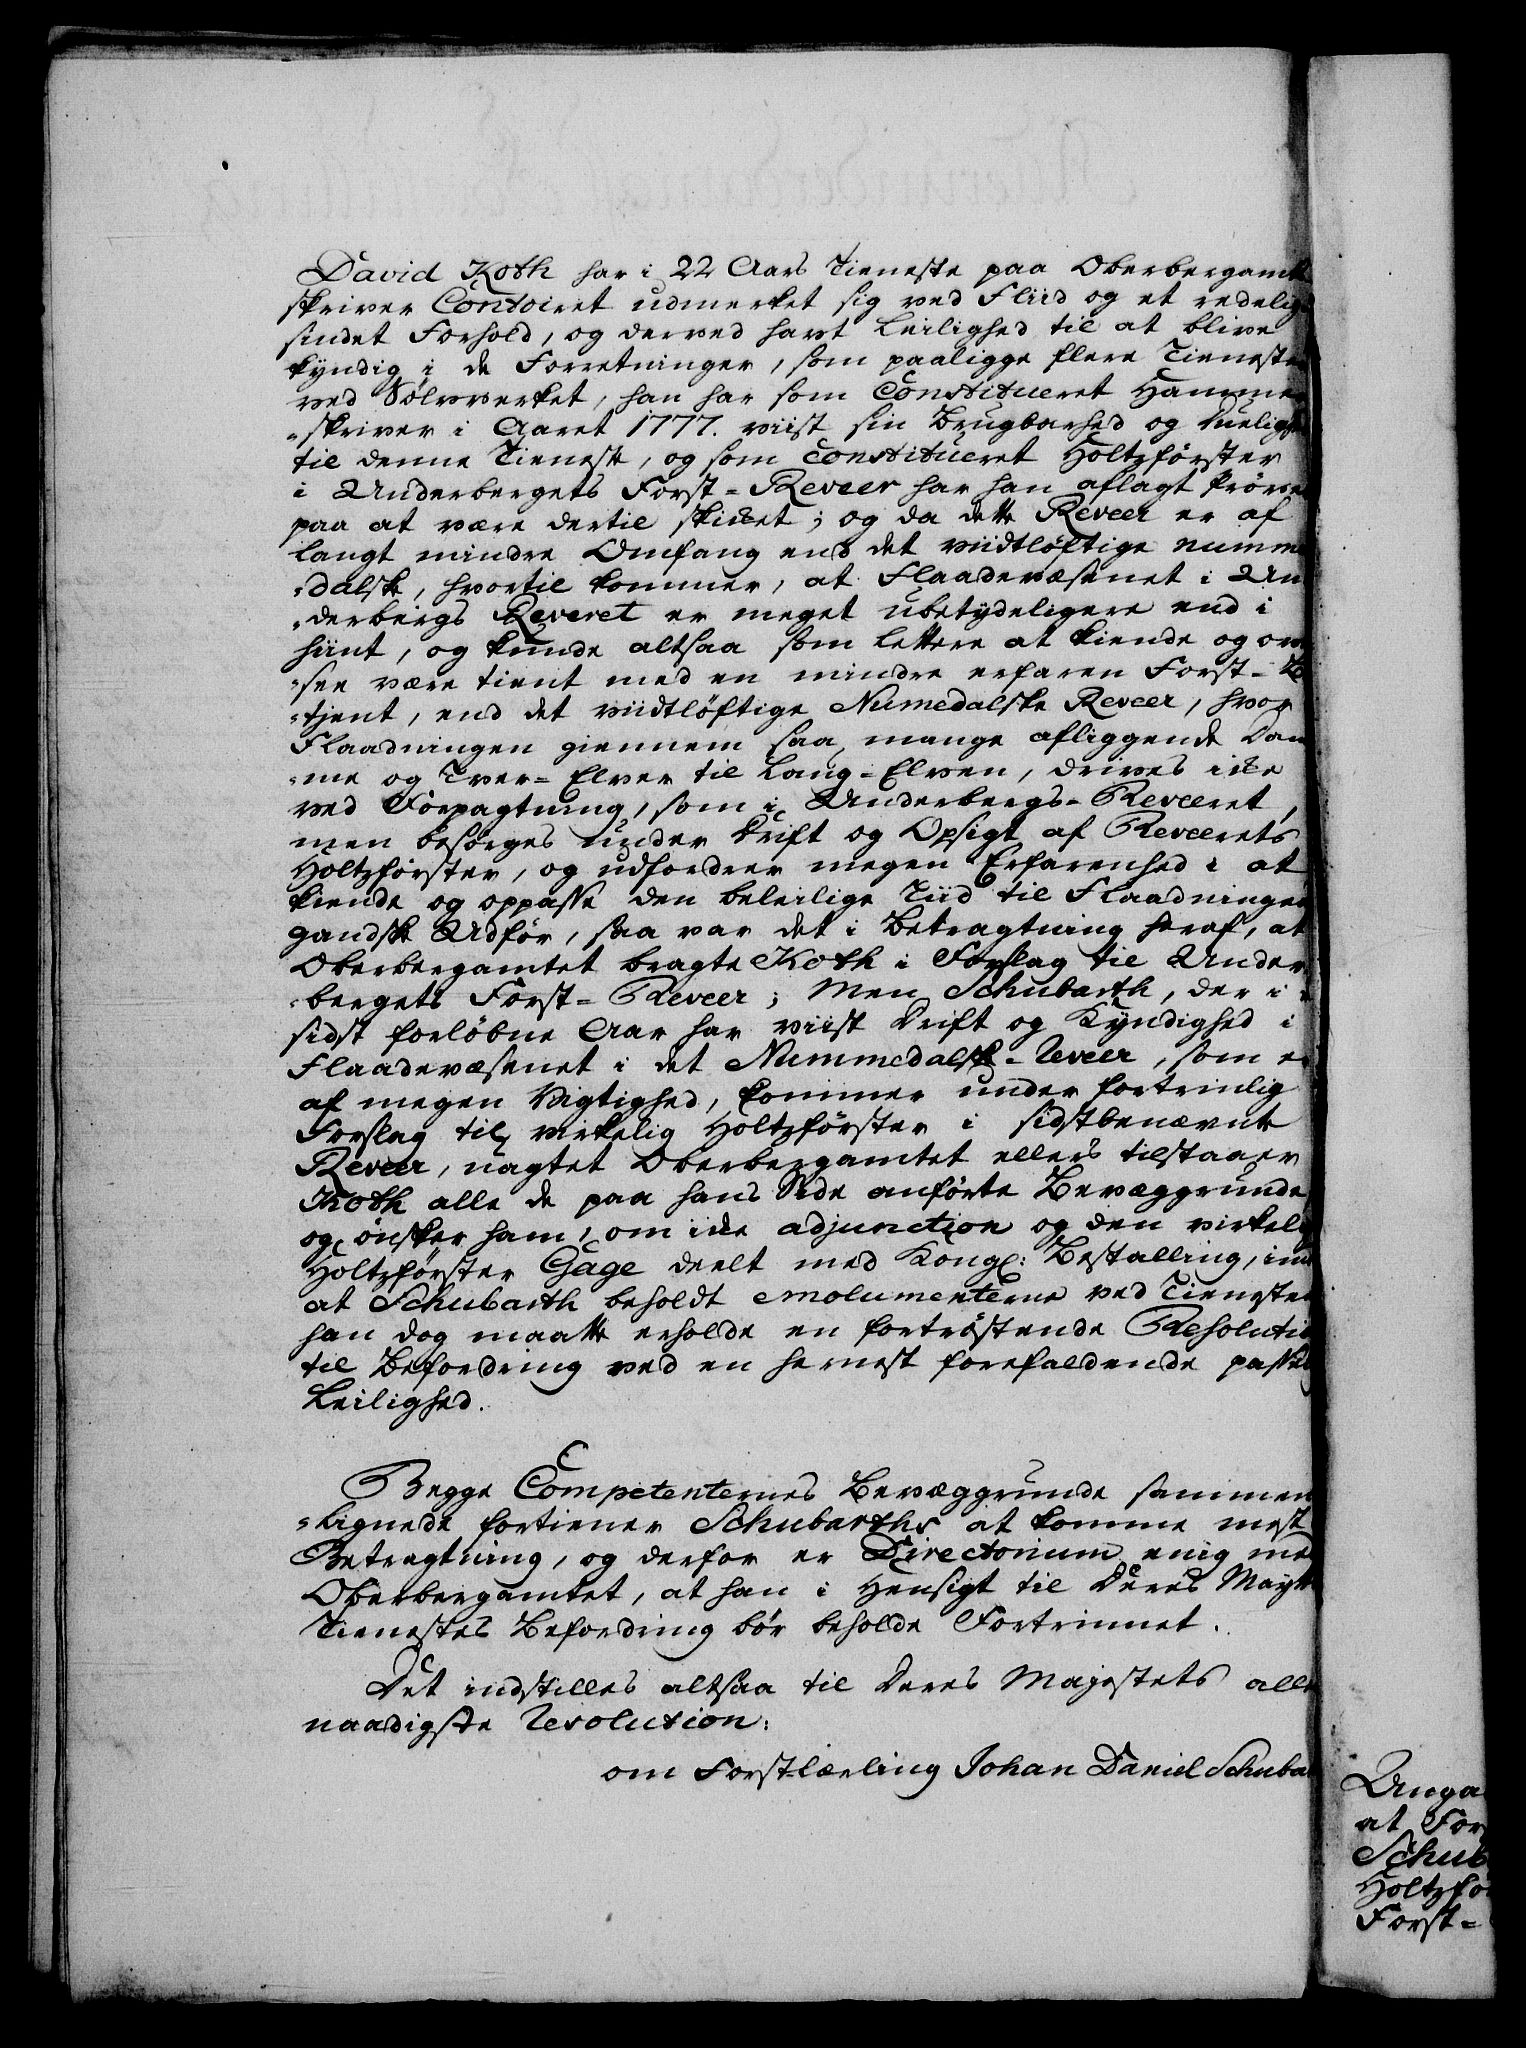 David Koth har i 22 Aars Tieneste paa Oberbergamts
skriver Contoiret udmerket sig ved Fliid og et redelig
sindet Forhold, og derved havt Leilighed til at blive
kyndig i de Forretninger, som paaligge flere Tieneste
ved Sølvverket, han har som Constitueret Hammer
=skriver i Aaret 1777. viist sin Brugbarhed og Duelighed
til denne Tieneste, og som Constitueret Holtzførster
i Underbergets Forst=Reveer har han aflagt Prøve
paa at være dertil skikket; og da dette Reveer er af
langt mindre Omfang end det viidtløftige Numme
=dalske, hvortil kommer, at Flaadevæsenet i Un
=derbergs Reveret er meget ubetydeligere end i
hiint, og kunde altsaa som lettere at kiende og over
=see være tient med en mindre erfaren Forst=Be
=tjent, end det viidtløftige Numedalske Reveer, hvor
Flaadningen giennem saa mange afliggende Dam
=me og Tver=Elver til Lang=Elven, drives ikke
ved Forpagtning, som i Underbergs=Reveeret,
men besørges under Drift og Opsigt af Reveerets
Holtzførster, og udfordrer megen Erfarenhed i at
kiende og oppasse den beleilige Tiid til Flaadningen
gandske Udfør, saa var det i Betragtning heraf, at
Oberbergamtet bragte Koth i Forslag til Under
=bergets Forst=Reveer; Men Schubarth, der i
sidst forløbne Aar har viist Drift og Kyndighed i
Flaadevæsenet i det Nummedalske=Reveer, som er
af megen Vigtighed, kommer under fortrinlig
Forslag til virkelig Holtzførster i sidstbenævnte
Reveer, uagtet Oberbergamtet ellers tilstaaer
Koth alle de paa hans Side anførte Bevæggrunde,
og ønsker ham, om ikke adjunction og den virkelige
Holtzførster Gage deelt med Kongl: Bestalling, imod
at Schubarth beholdt emolumenterne ved Tienesten
han dog maatte erholde en fortrøstende Resolution
til Befordring ved en hernest forefaldende passende
Leilighed.

Begge Competenternes Bevæggrunde sammen
=lignede fortiener Schubarths at komme mest
Betragtning, og derfor er Directorium enig med
Oberbergamtet, at han i Hensigt til Deres Mayts
Tienestes Befordring bør beholde Fortrinnet.

Det indstilles altsaa til Deres Majestets aller
naadigste Resolution:

om Forstlærling Johan Daniel Schuba

Anga
at For
Schub
Holtzfø
Forst=